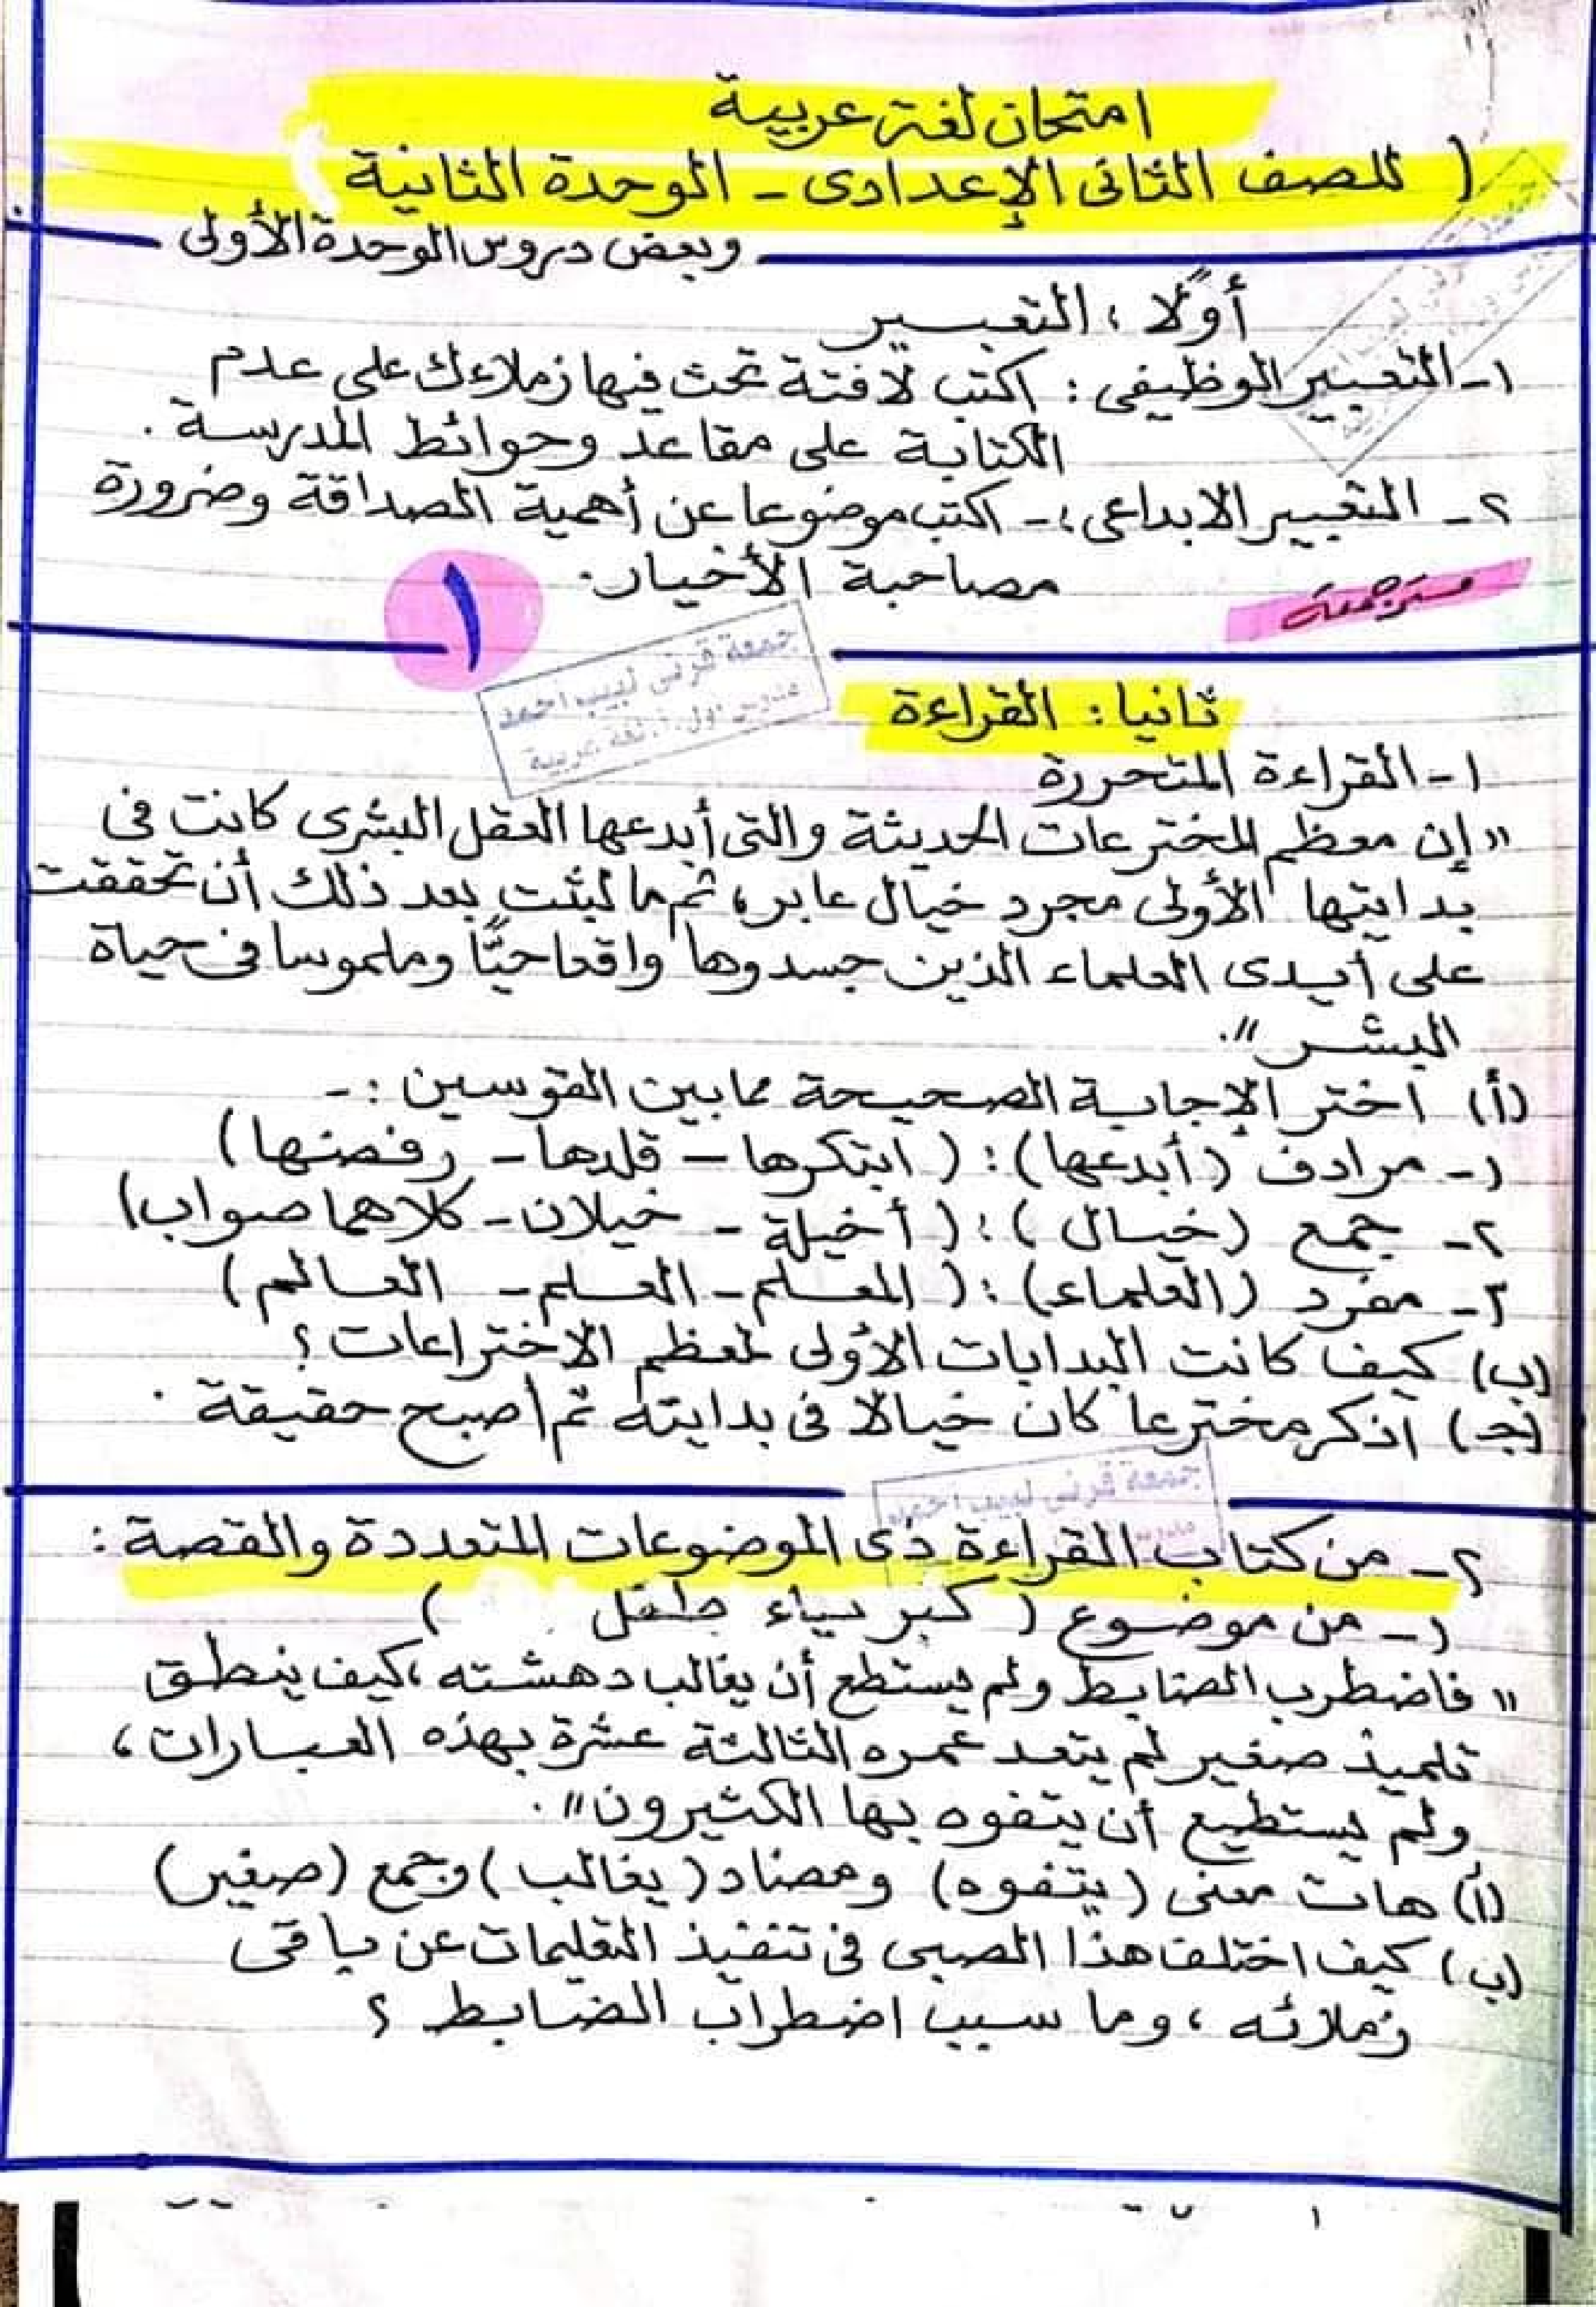 امتحان لغة عربية
( للصف الثانى الإعدادى - الوحدة الثانية )
وبعض دروس الوحدة الأولى
أولًا : التعبير
١- التعبير الوظيفى : اكتب لافتة تحث فيها زملاءك على عدم
الكتابة على مقاعد وحوائط المدرسة .
٢- التعبير الابداعى :- اكتب موضوعا عن أهمية الصداقة وضرورة
مصاحبة الأخيار .
١
جمعة قرنى لبيب احمد
مدرس اول أ. لغة عربية
ثانيا : القراءة
١- القراءة المتحررة
" إن معظم المخترعات الحديثة والتى أبدعها العقل البشرى كانت فى
بدايتها الأولى مجرد خيال عابر ، ثم ما لبثت بعد ذلك أن تحققت
على أيدى العلماء الذين جسدوها واقعا حيًّا وملموسا فى حياة
البشر ".
(أ) اختر الإجابة الصحيحة مما بين القوسين :-
١- مرادف (أبدعها) : ( ابتكرها - قلدها - رفضها )
٢- جمع (خيال) : ( أخيلة - خيلان - كلاهما صواب )
٣- مفرد (العلماء) : ( المعلم - العلم - العالم )
(ب) كيف كانت البدايات الأولى لمعظم الاختراعات ؟
(جـ) اذكر مخترعا كان خيالا فى بدايته ثم اصبح حقيقة .
جمعة قرنى لبيب احمد
مدرس
٢- من كتاب القراءة ذى الموضوعات المتعددة والقصة :
١- من موضوع ( كبرياء طفل )
" فاضطرب الضابط ولم يستطع أن يغالب دهشته ، كيف ينطق
تلميذ صغير لم يتعد عمره الثالثة عشرة بهذه العبارات ،
ولم يستطيع أن يتفوه بها الكثيرون ".
(أ) هات معنى (يتفوه) ومضاد (يغالب) وجمع (صغير)
(ب) كيف اختلف هذا الصبى فى تنفيذ التعليمات عن باقى
زملائه ، وما سبب اضطراب الضابط ؟